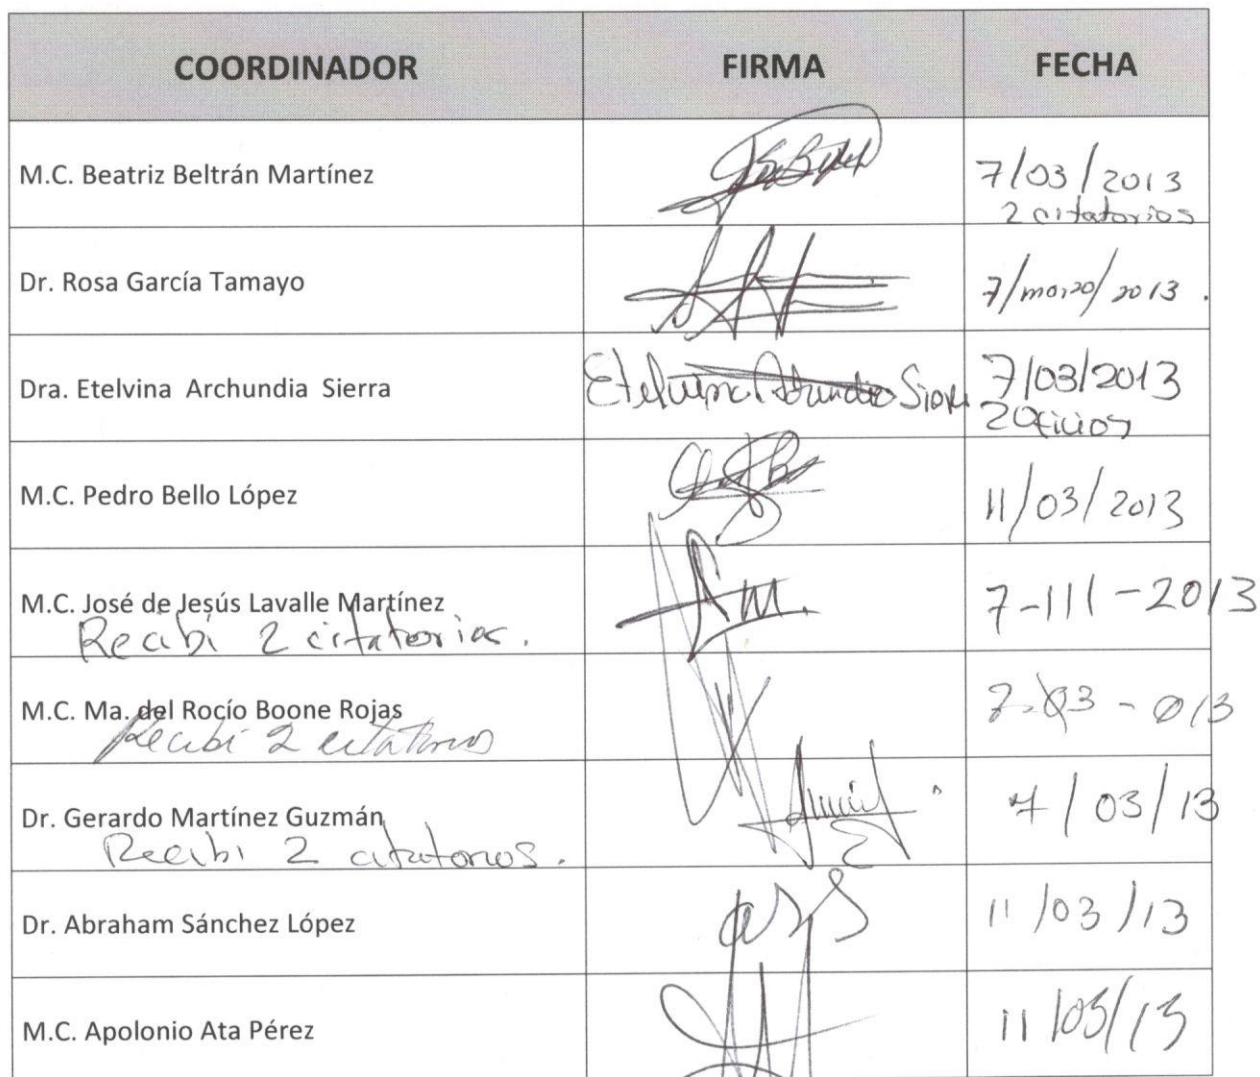 COORDINADOR FIRMA FECHA
M.C. Beatriz Beltrán Martínez 7/03/2013
2 citatorios
Dr. Rosa García Tamayo 7/marzo/2013.
Dra. Etelvina Archundia Sierra Etelvina Archundia Sierra 7/03/2013
2 Oficios
M.C. Pedro Bello López 11/03/2013
M.C. José de Jesús Lavalle Martínez 7-III-2013
Recibí 2 citatorios.
M.C. Ma. del Rocío Boone Rojas 7-03-013
Recibí 2 citatorios
Dr. Gerardo Martínez Guzmán 7/03/13
Recibi 2 citatorios.
Dr. Abraham Sánchez López 11/03/13
M.C. Apolonio Ata Pérez 11/03/13